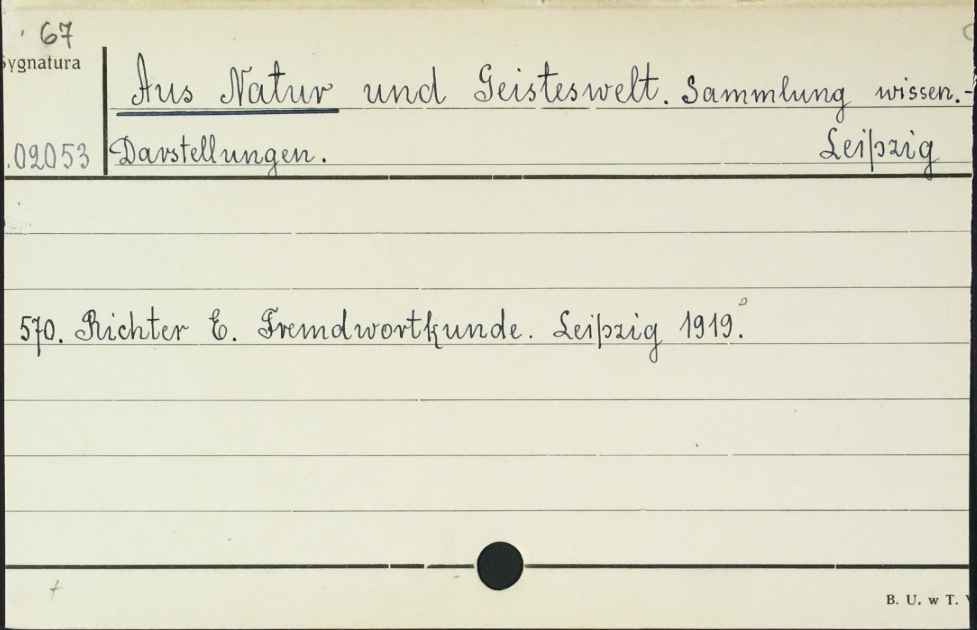 67
Sygnatura
Aus Natur und Geisteswelt. Sammlung wissen.-
.02053 Darstellungen. Leipzig
570. Richter E. Fremdwortkunde. Leipzig 1919.
B. U. w T.